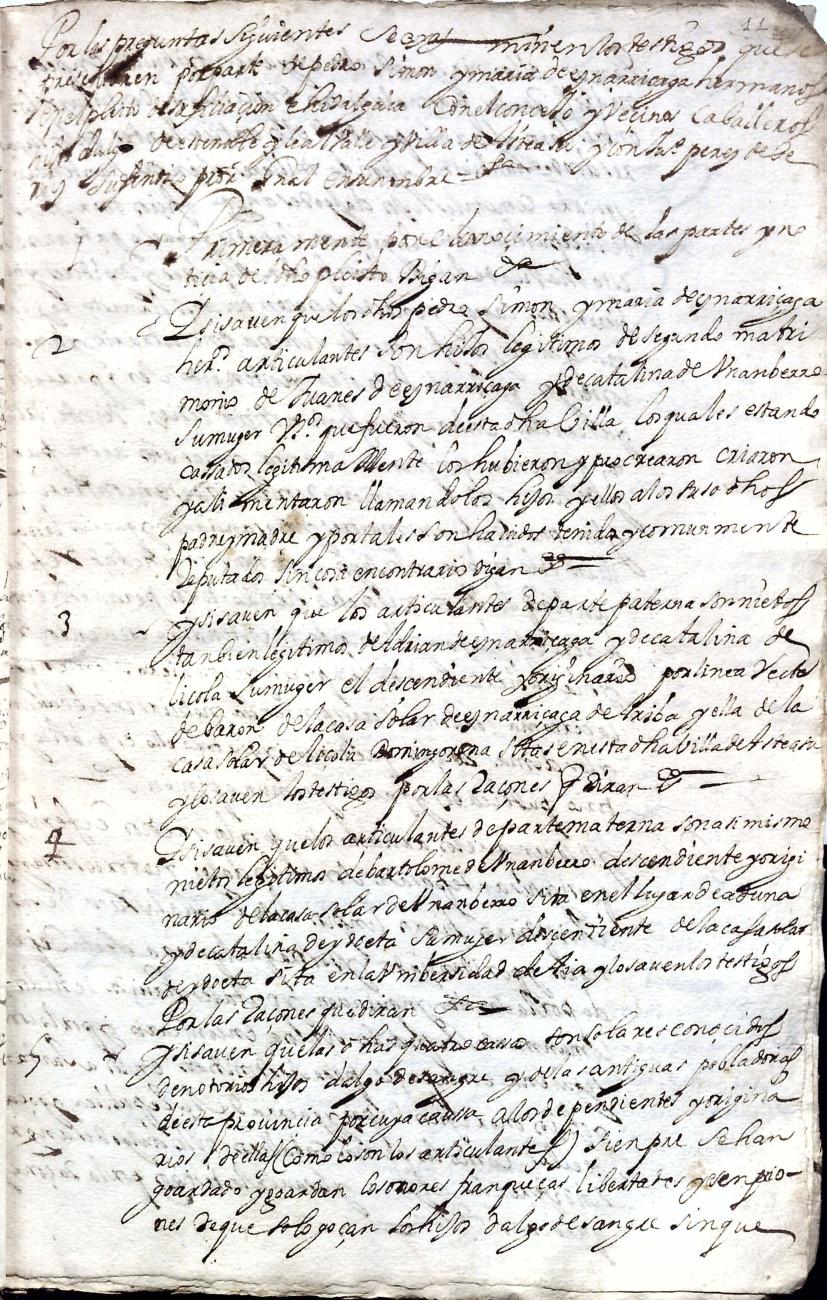 11
Por las preguntas siguientes se examinen los testigos que se
presentaren por parte de pedro simon y maria de ynarriçaga hermanos
en el pleito de su filiacion e hidalguia con el concejo y Vecinos Caballeros
hijos dalgo de esta noble y leal Valle y Villa de Asteasu y con Ju.º perez de
su sindico pro.r Jnral en su nombre
1 Primera mente por el Conocimiento de las partes y no
ticia del dho pleito Digan
2 Ysi saven que los dhos pedro simon y maria de ynarriçaga
her.os articulantes son hijos legitimos de segundo matri
monio de Juanes de ynarriçaga y de catalina de Vnanberro
su muger V.os que fueron de esta dha Villa los quales estando
cassados legitima Mente los hubieron y procrearon criaron
y ali mentaron llamandolos hijos y ellos a los suso dhos
padre y madre y por tales son havidos tenidos y comun mente
Reputados sin cosa en contrario digan
3 ysi saven que los articulantes de parte paterna son nietos
tanbien legitimos de Adrian de ynarriçaga y de catalina de
licola su muger el descendiente y originario por linea Recta
de baron de la casa solar de ynarriçaga de Ariba y ella de la
casa solar de licola Domingorena sitas en esta dha Villa de Asteasu
y lo saven los testigos por las Raçones q diran
4 Ysi saven que los articulantes de parte materna son asi mismo
nietos legitimos de bartolome de Vnanberro descendiente y origi
nario de la casa solar de Vnanberro sita en el lugar de aduna
y de catalina de ydoeta su muger descendiente de la casa solar
de ydoeta sita en la Vnibersidad de Aia y lo saven los testigos
Por las Raçones que diran
5 ysi saven que las dhas quatro casas son solares conocidos
de notorios hijos dalgo de sangre y de las antiguas pobladoras
de esta provincia por cuya causa a los dependientes y origina
rios de ellas (Como lo son los articulantes) sienpre se han
goardado y goardan los onores franqueças libertades y esenpcio-
nes de que solo goçan los hijos dalgo de sangre sin que